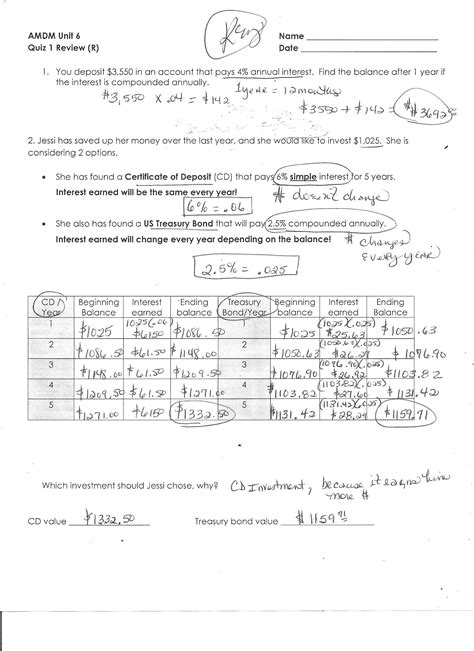 AMDM Unit 6
Quiz 1 Review (R)
Key
Name
Date
1. You deposit $3,550 in an account that pays 4% annual interest. Find the balance after 1 year if
the interest is compounded annually.
1 year = 12 months
$3,550 x .04 = $142
$3550 + $142 = $3692
2. Jessi has saved up her money over the last year, and she would like to invest $1,025. She is
considering 2 options.
• She has found a Certificate of Deposit (CD) that pays 6% simple interest for 5 years.
Interest earned will be the same every year!
# doesn't change
6% = .06
• She also has found a US Treasury Bond that will pay 2.5% compounded annually.
Interest earned will change every year depending on the balance!
# changes
every year
2.5% = .025
CD / Year Beginning Balance Interest earned Ending balance Treasury Bond/Year Beginning balance Interest earned Ending Balance
1 $1025 1025(.06) $6150 $1086.50 1 $1025 (1025)(.025) $25.63 $1050.63
2 $1086.50 $61.50 $1148.00 2 $1050.63 (1050.63)(.025) $26.27 $1076.90
3 $1148.00 $61.50 $1209.50 3 $1076.90 (1076.90)(.025) $26.92 $1103.82
4 $1209.50 $61.50 $1271.00 4 $1103.82 (1103.82)(.025) $27.60 $1131.42
5 $1271.00 $6150 $1332.50 5 $1131.42 (1131.42)(.025) $28.29 $1159.71
Which investment should Jessi chose, why? CD Investment, because it earns
more $
CD value $1332.50 Treasury bond value $1159.71